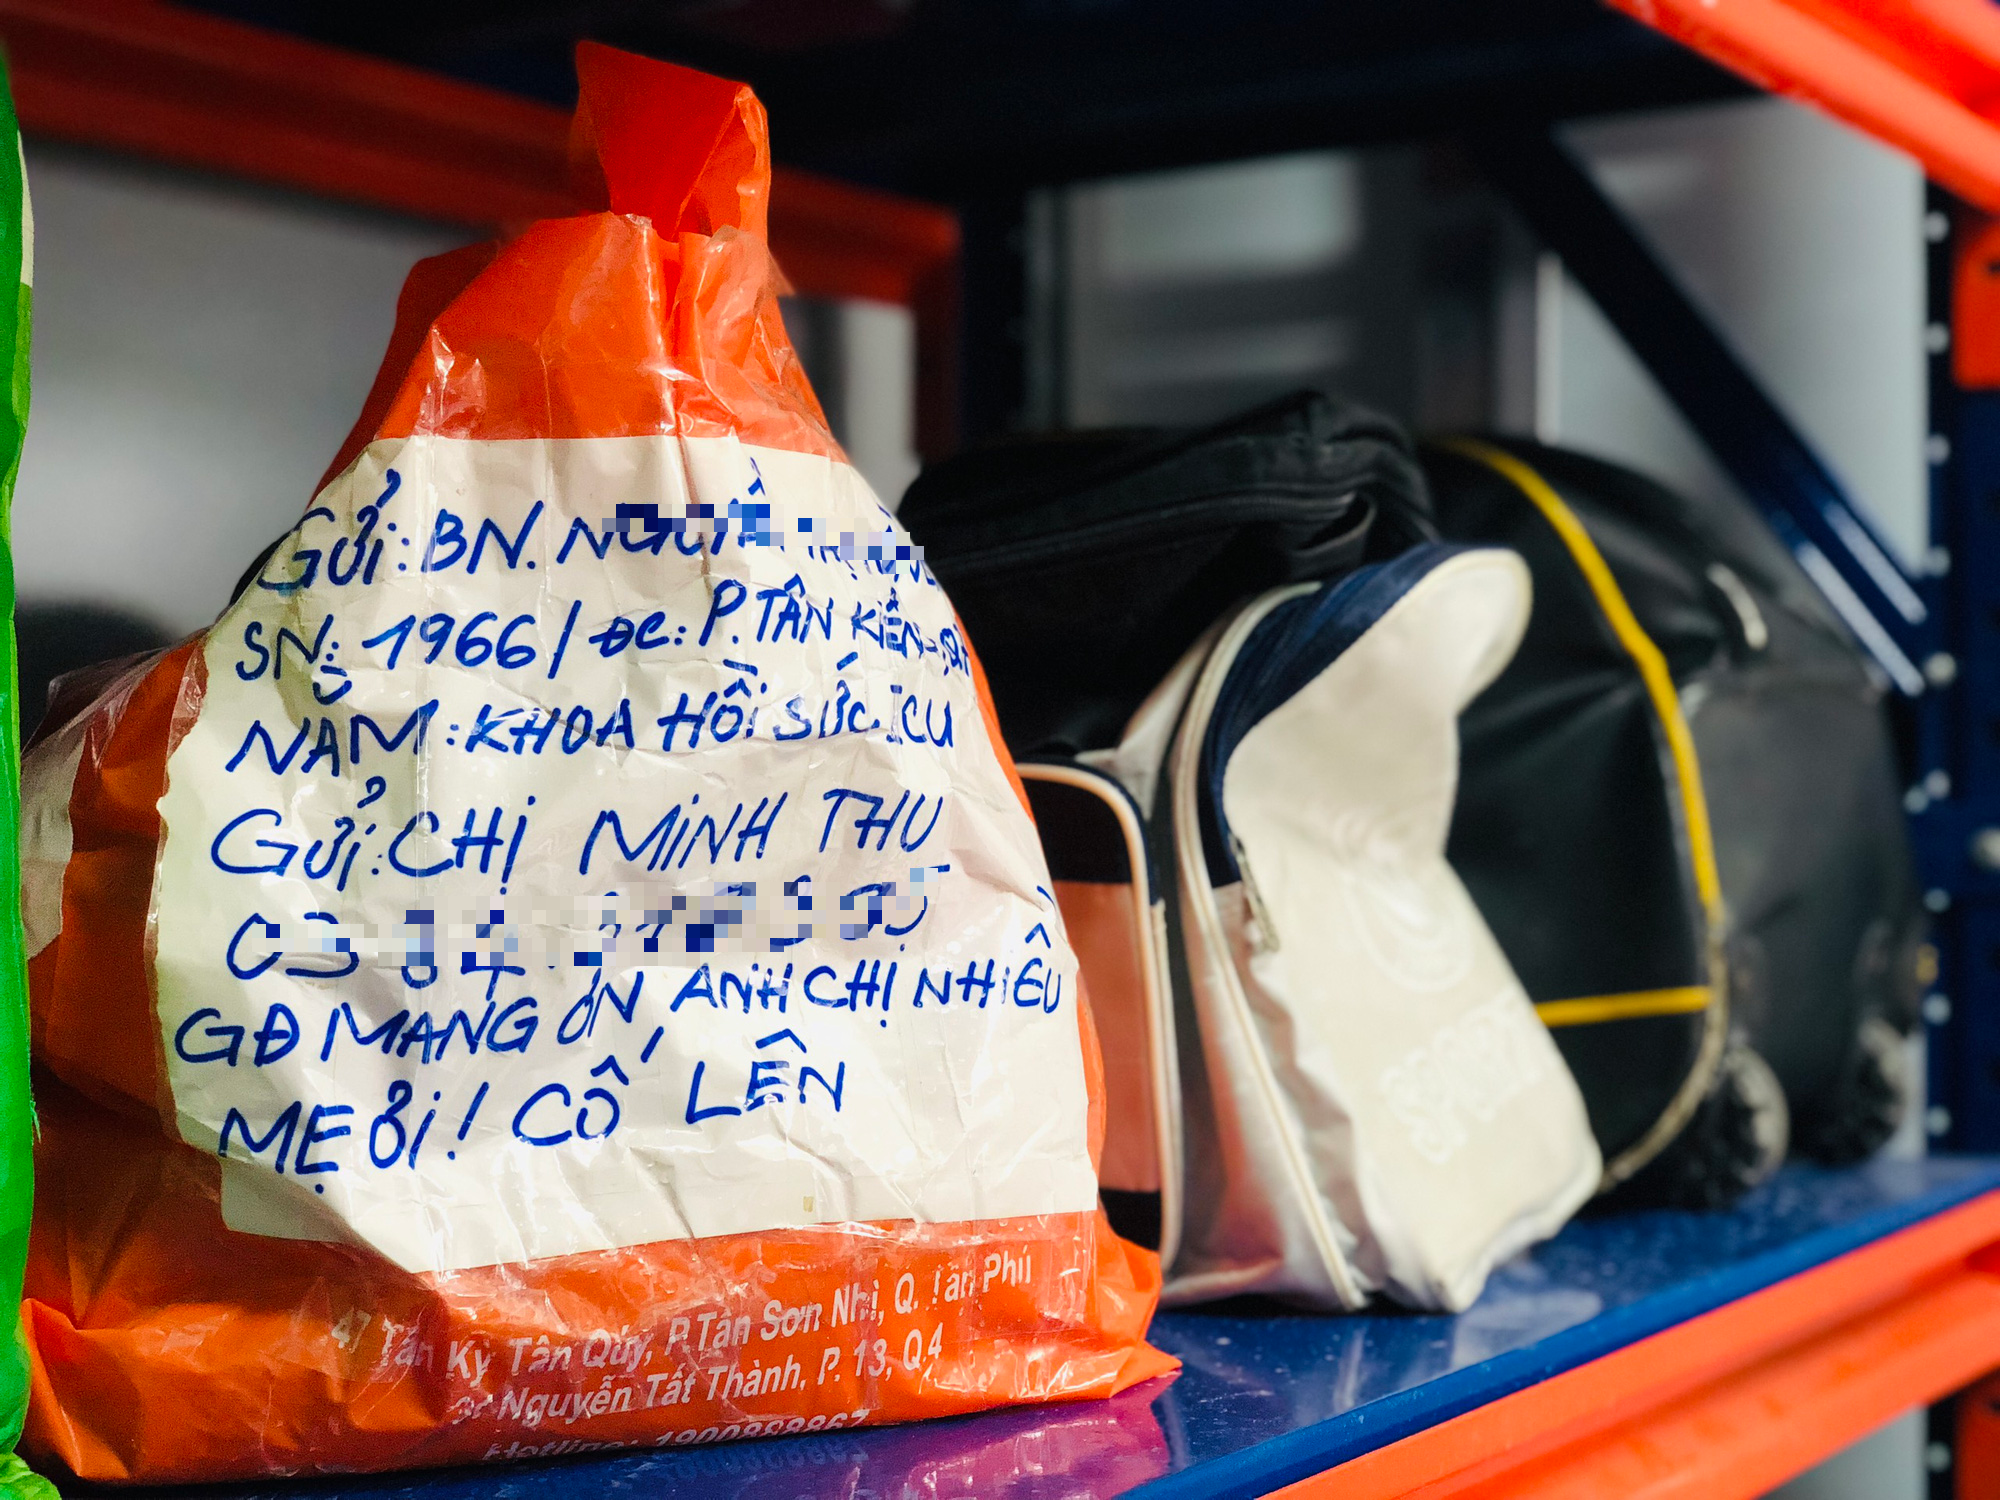 GỬI: BN.
SN: 1966 / ĐC: P. TÂN KIỂNG,
NẰM: KHOA HỒI SỨC ICU
GỬI: CHỊ MINH THƯ
GĐ MANG ƠN ANH CHỊ NHIỀU
MẸ ƠI! CỐ LÊN
47 Tân Kỳ Tân Quý, P.Tân Sơn Nhì, Q. Tân Phú
Nguyễn Tất Thành, P. 13, Q.4
Hotline: 1900888867
SPORT